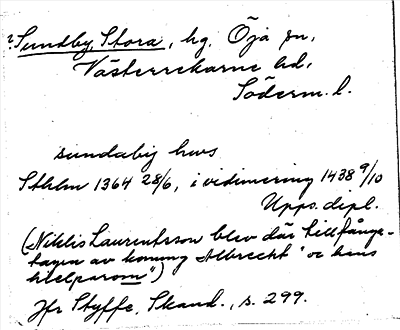 ? Sundby, Stora, hg. Öja sn,
Västerrekarne hd,
Söderm. l.
sundaby hws
Sthlm 1364 28/6, i vidimering 1438 9/10
Upps. dipl.
(Niklis Laurentsson blev där tillfånga-
tagen av konung Albrecht "oc hans
hielparom")
Jfr Styffe, Skand., s. 299.